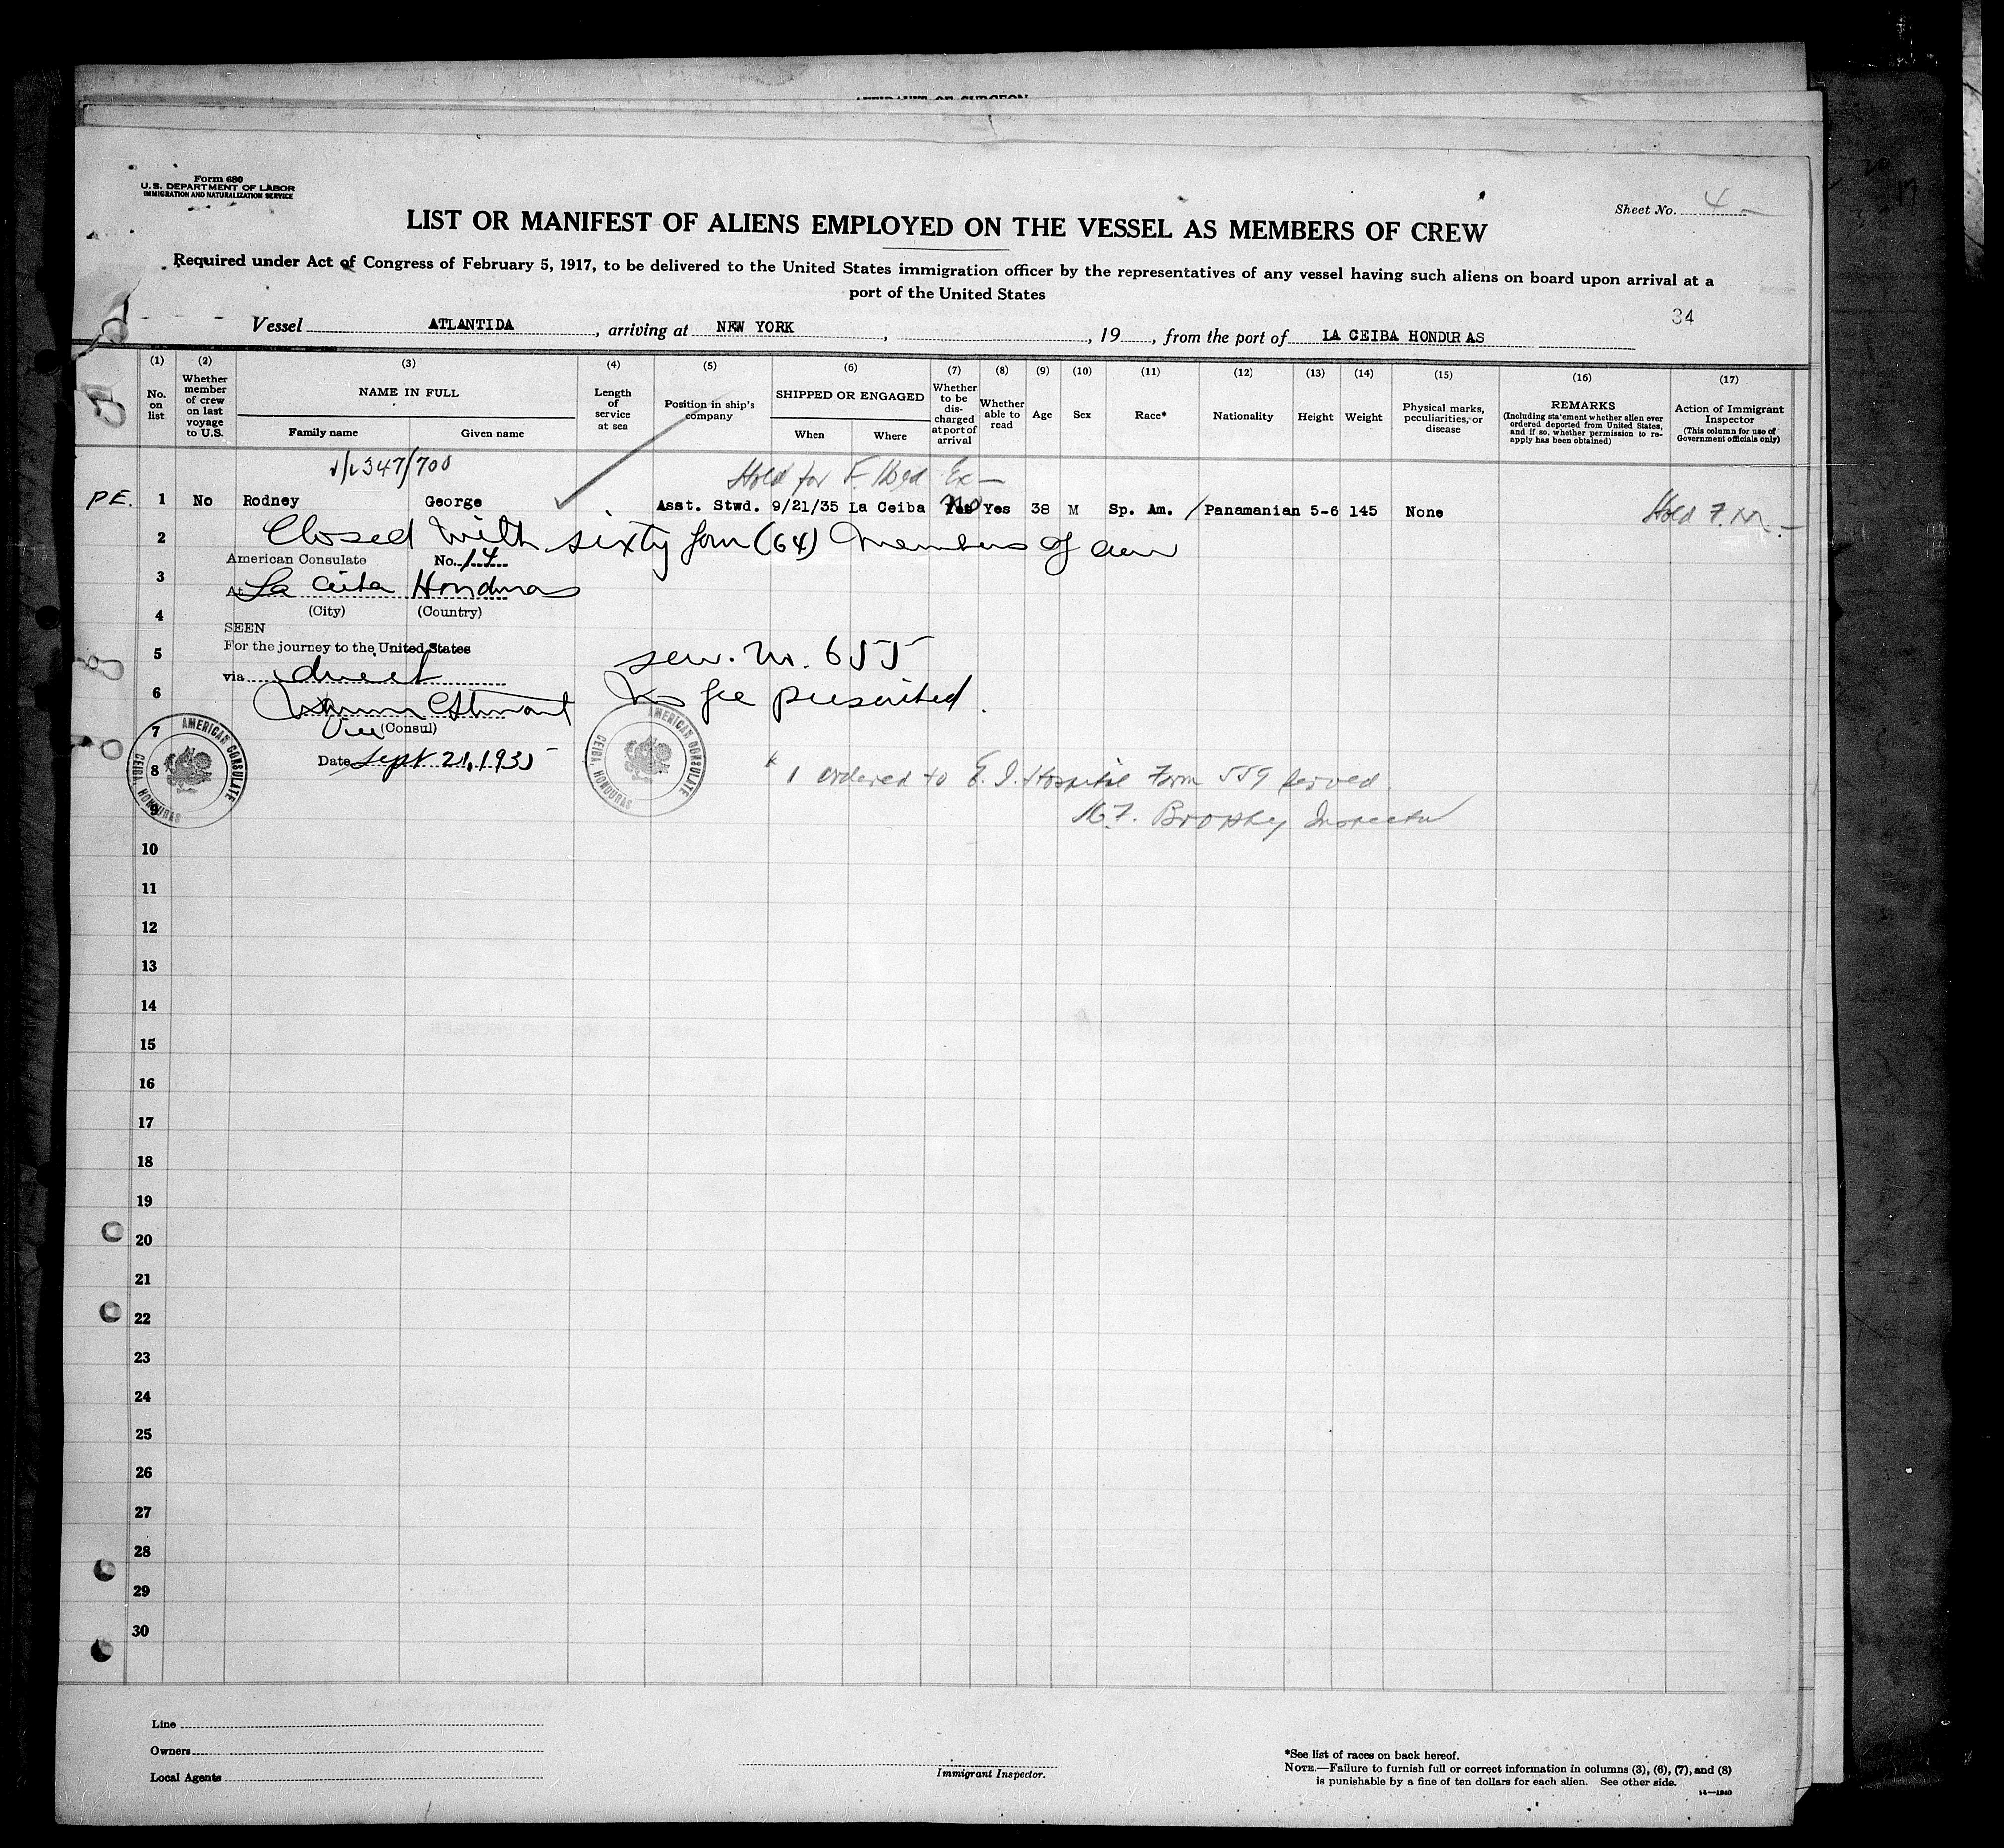 AFFIDAVIT OF SURGEON
Form 680
U. S. DEPARTMENT OF LABOR
IMMIGRATION AND NATURALIZATION SERVICE
Sheet No. 4
LIST OR MANIFEST OF ALIENS EMPLOYED ON THE VESSEL AS MEMBERS OF CREW
Required under Act of Congress of February 5, 1917, to be delivered to the United States immigration officer by the representatives of any vessel having such aliens on board upon arrival at a
port of the United States
34
Vessel ATLANTIDA, arriving at NEW YORK, , 19 , from the port of LA CEIBA HONDURAS
(1) No. on list
(2) Whether member of crew on last voyage to U.S.
(3) NAME IN FULL
Family name
Given name
(4) Length of service at sea
(5) Position in ship's company
(6) SHIPPED OR ENGAGED
When
Where
(7) Whether to be discharged at port of arrival
(8) Whether able to read
(9) Age
(10) Sex
(11) Race*
(12) Nationality
(13) Height
(14) Weight
(15) Physical marks, peculiarities, or disease
(16) REMARKS
(Including statement whether alien ever ordered deported from United States, and if so, whether permission to reapply has been obtained)
(17) Action of Immigrant Inspector
(This column for use of Government officials only)
347/700
Hold for Ex
P.E. 1 No Rodney George Asst. Stwd. 9/21/35 La Ceiba No Yes 38 M Sp. Am. / Panamanian 5-6 145 None Hold
2 Closed with sixty four (64) members of crew
American Consulate No. 14
3 At La Ceiba Honduras
4 (City) (Country)
SEEN
For the journey to the United States
5 ser. no. 655
via direct
6 No fee prescribed.
Vice (Consul)
7
Date Sept 21, 1935
AMERICAN CONSULATE
CEIBA, HONDURAS
AMERICAN CONSULATE
CEIBA, HONDURAS
8 * 1 ordered to E. I. Hospital Form 559 served
9 Brophy Inspector
10
11
12
13
14
15
16
17
18
19
20
21
22
23
24
25
26
27
28
29
30
Line
Owners
Local Agents
Immigrant Inspector.
*See list of races on back hereof.
NOTE.—Failure to furnish full or correct information in columns (3), (6), (7), and (8)
is punishable by a fine of ten dollars for each alien. See other side.
14—1240